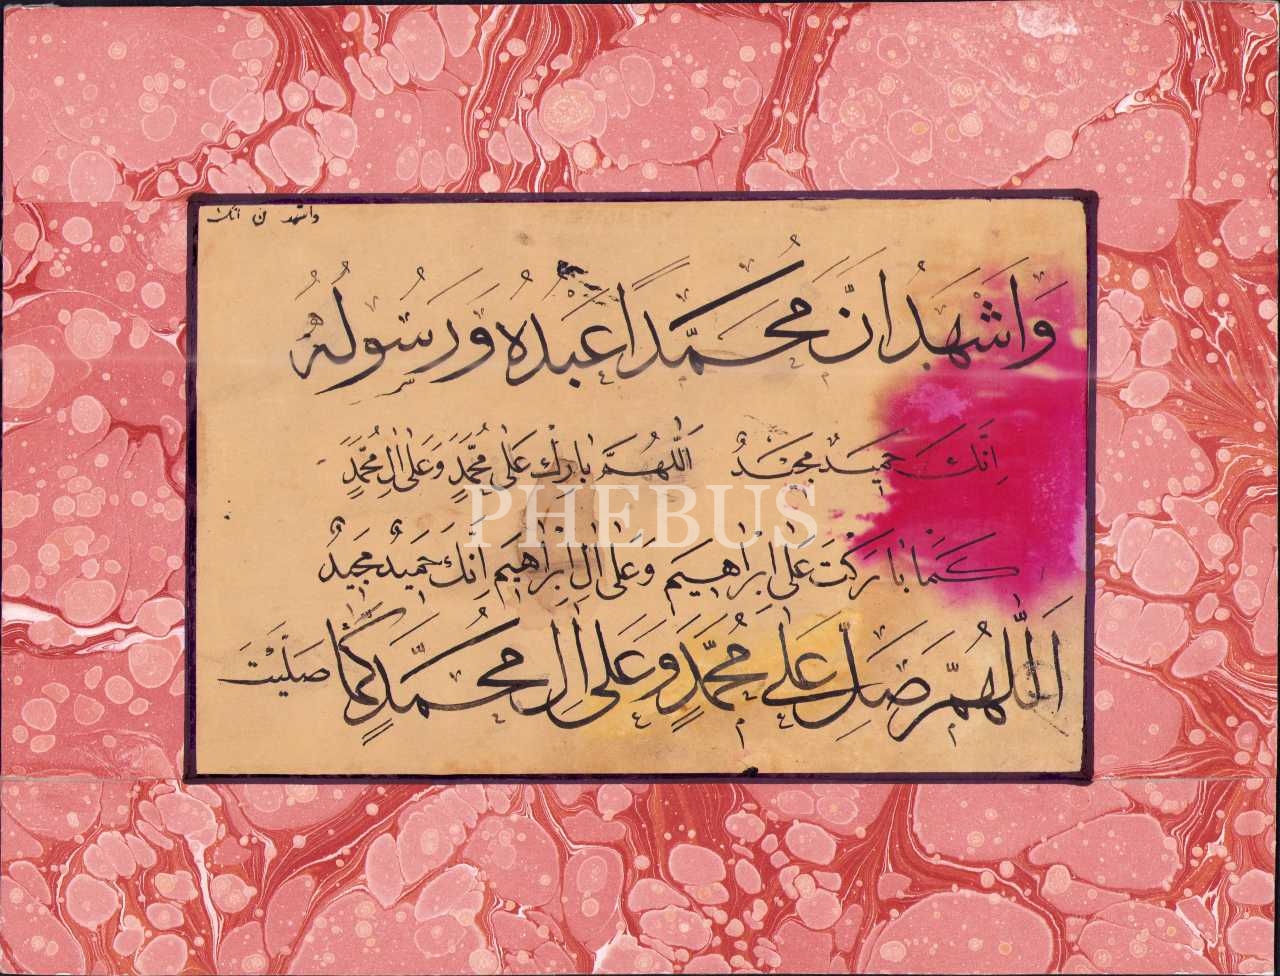 واشهد ن انك
وَاَشْهَدُ اَنَّ مُحَمَّدًا عَبْدُهُ وَرَسُولُهُ
اِنَّكَ حَمِيدٌ مَجِيْدٌ اَللّٰهُمَّ بَارِكْ عَلٰى مُحَمَّدٍ وَعَلٰى اٰلِ مُحَمَّدٍ
PHEBUS
كَمَا بَارَكْتَ عَلٰى اِبْرَاهِيمَ وَعَلٰى اٰلِ اِبْرَاهِيمَ اِنَّكَ حَمِيدٌ مَجِيدٌ
اَللّٰهُمَّ صَلِّ عَلٰى مُحَمَّدٍ وَعَلٰى اٰلِ مُحَمَّدٍ كَمَا صَلَّيْتَ